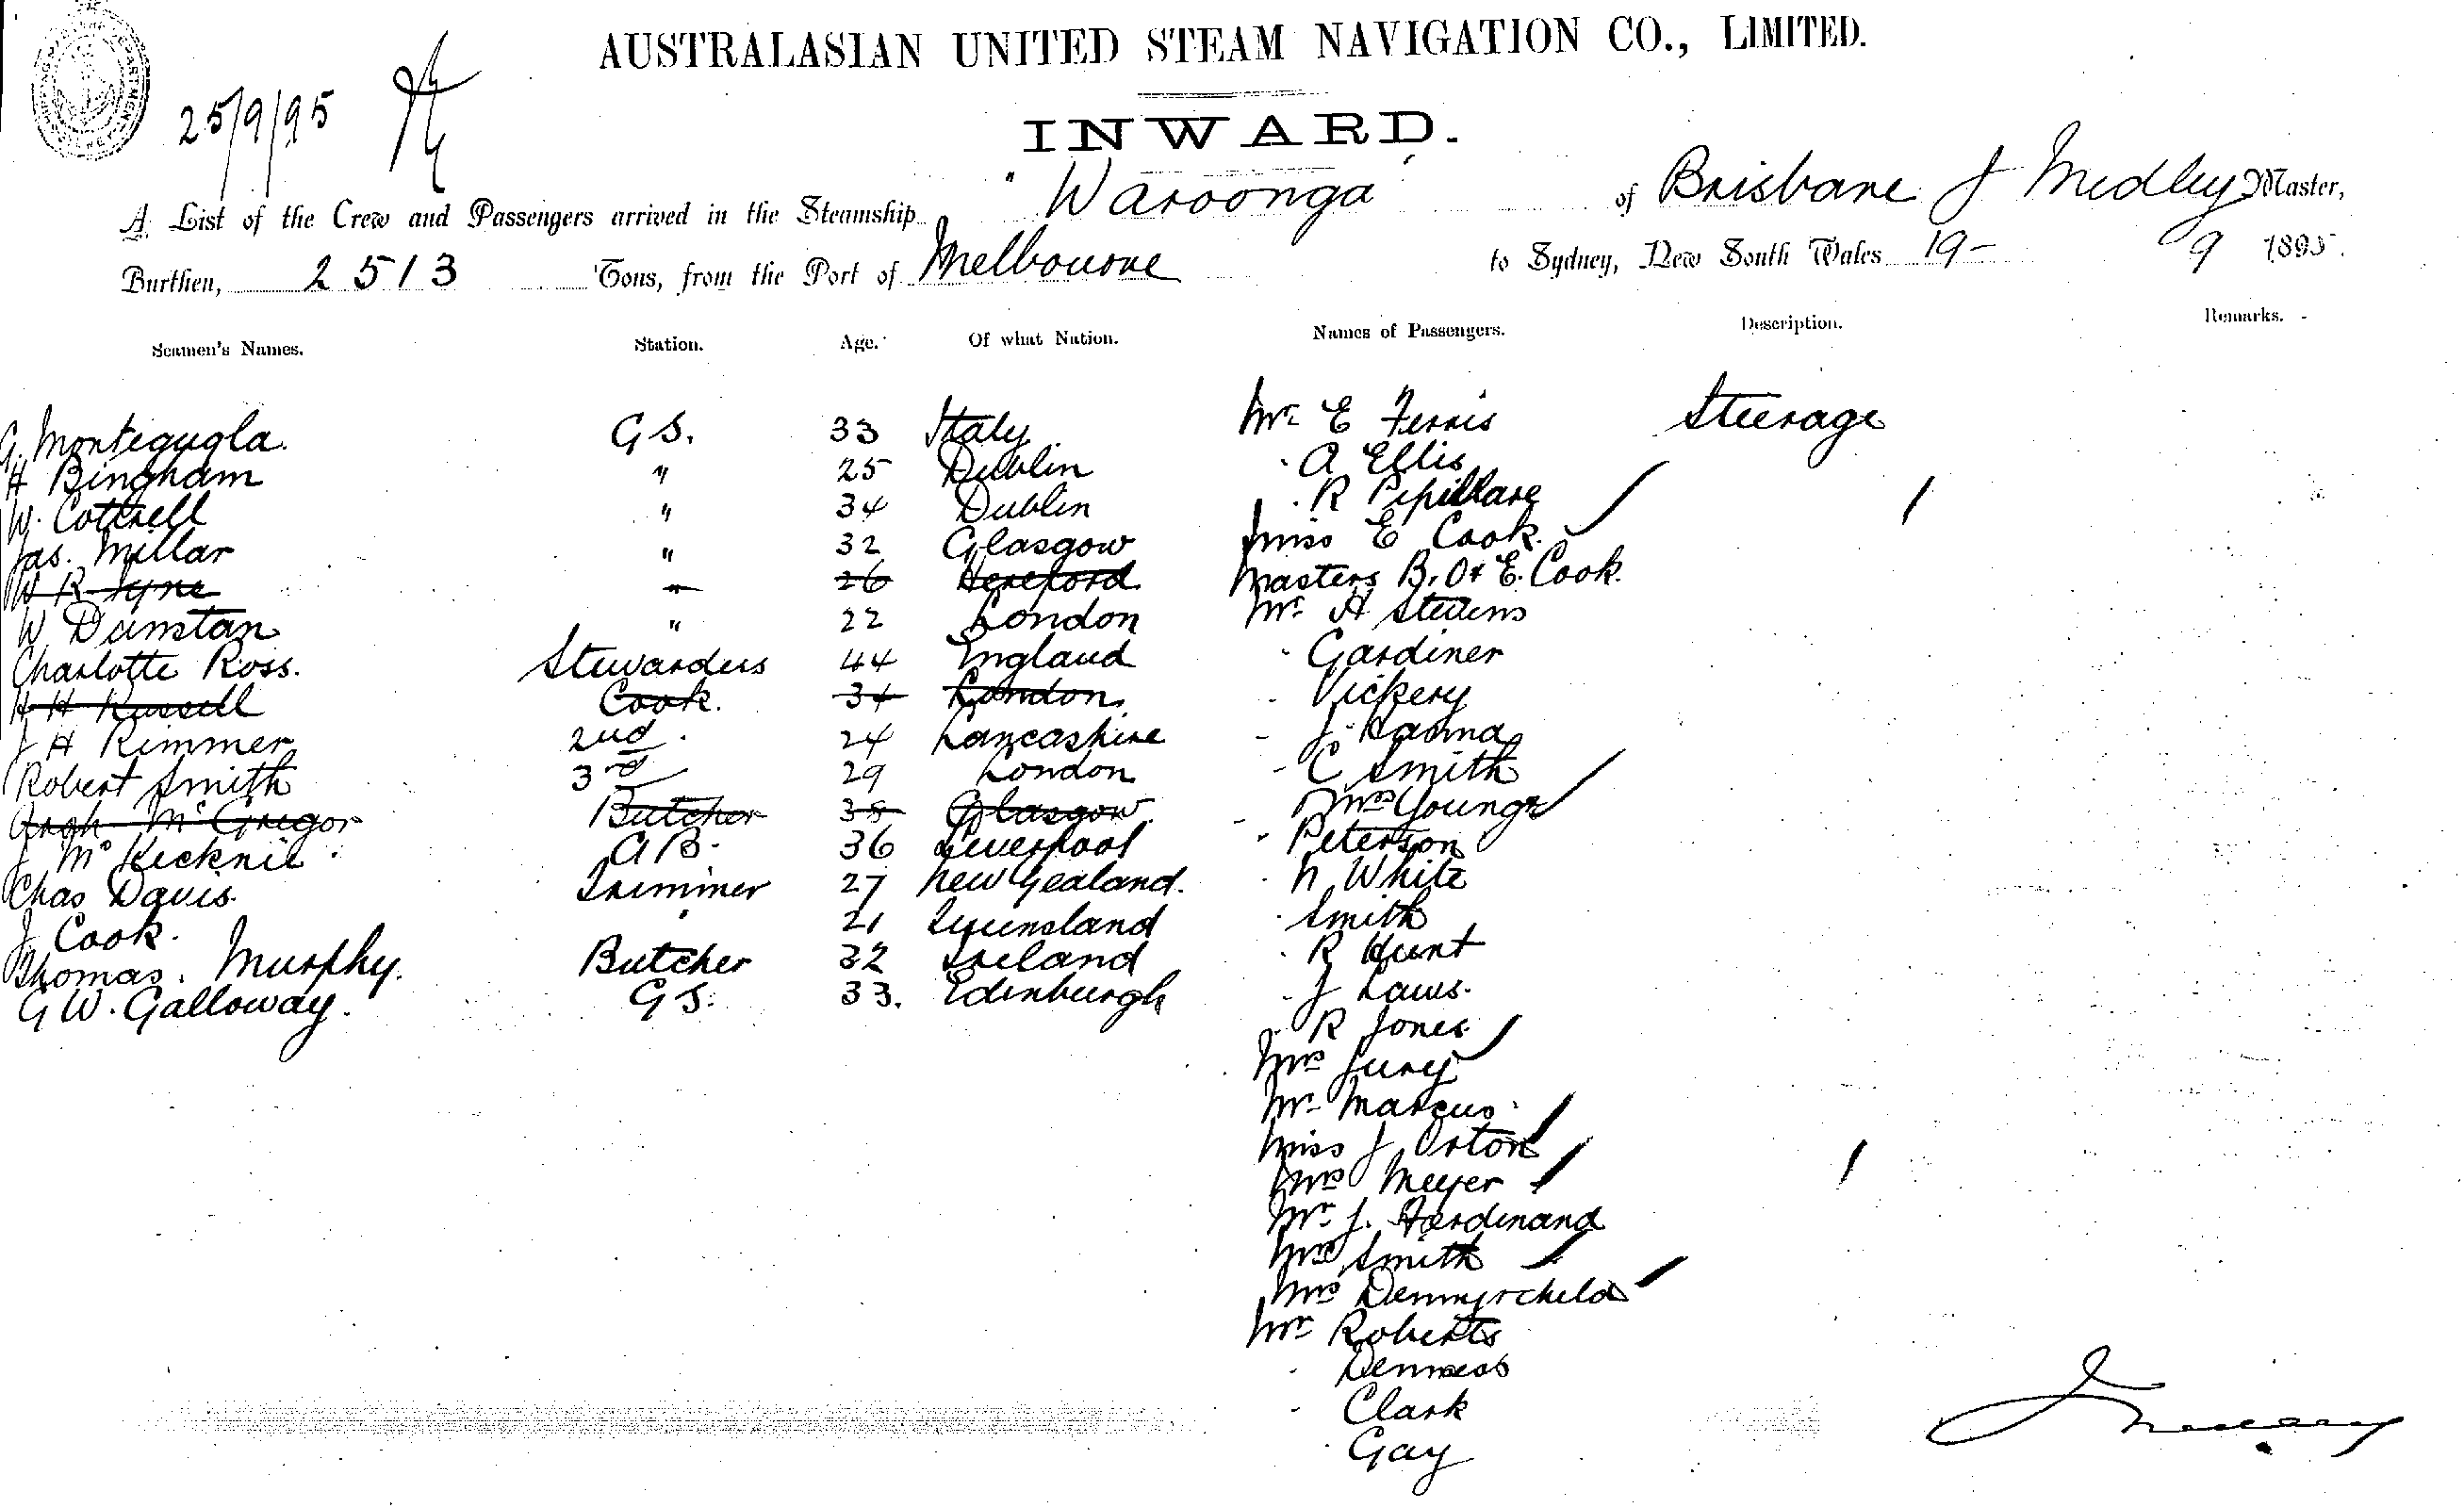 AUSTRALASIAN UNITED STEAM NAVIGATION CO., LIMITED.
25/9/95
INWARD.
A List of the Crew and Passengers arrived in the Steamship "Waroonga" of Brisbane J Medley Master,
Burthen, 2513 Tons, from the Port of Melbourne to Sydney, New South Wales 19- 9 1895.
Seamen's Names. Station. Age. Of what Nation. Names of Passengers. Description. Remarks.
G. Montegugla. G S. 33 Italy. Mr E Ferris Steerage
H Bingham " 25 Dublin A Ellis
W. Cottrell " 34 Dublin R
Jas. Millar " 32 Glasgow Miss E Cook.
W R Tyne " 26 Hereford Masters B, O & E. Cook.
W Dunstan " 22 London Mr A Stevens
Charlotte Ross. Stewardess 44 England Gardiner
H H Russell Cook. 34 London. Vickery
J H Rimmer 2nd. 24 Lancashire J
Robert Smith 3rd 29 London C Smith
McGregor Butcher 38 Glasgow. Mrs Young
J Mc AB. 36 Liverpool Peterson
Chas Davis. Trimmer 27 New Zealand. N White
J Cook. " 21 Queensland Smith
Thomas. Murphy. Butcher 32 Ireland R Hunt
G W. Galloway. G S. 33. Edinburgh J Laws.
R Jones
Mrs Jury
Mr Marcus
Miss J Orton
Mrs Meyer
Mr J. Ferdinand
Mrs Smith
Mrs Denny & child
Mr Roberts
Denness
Clark
Gay